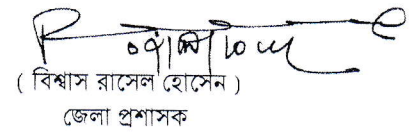 ( বিশ্বাস রাসেল হোসেন )
জেলা প্রশাসক